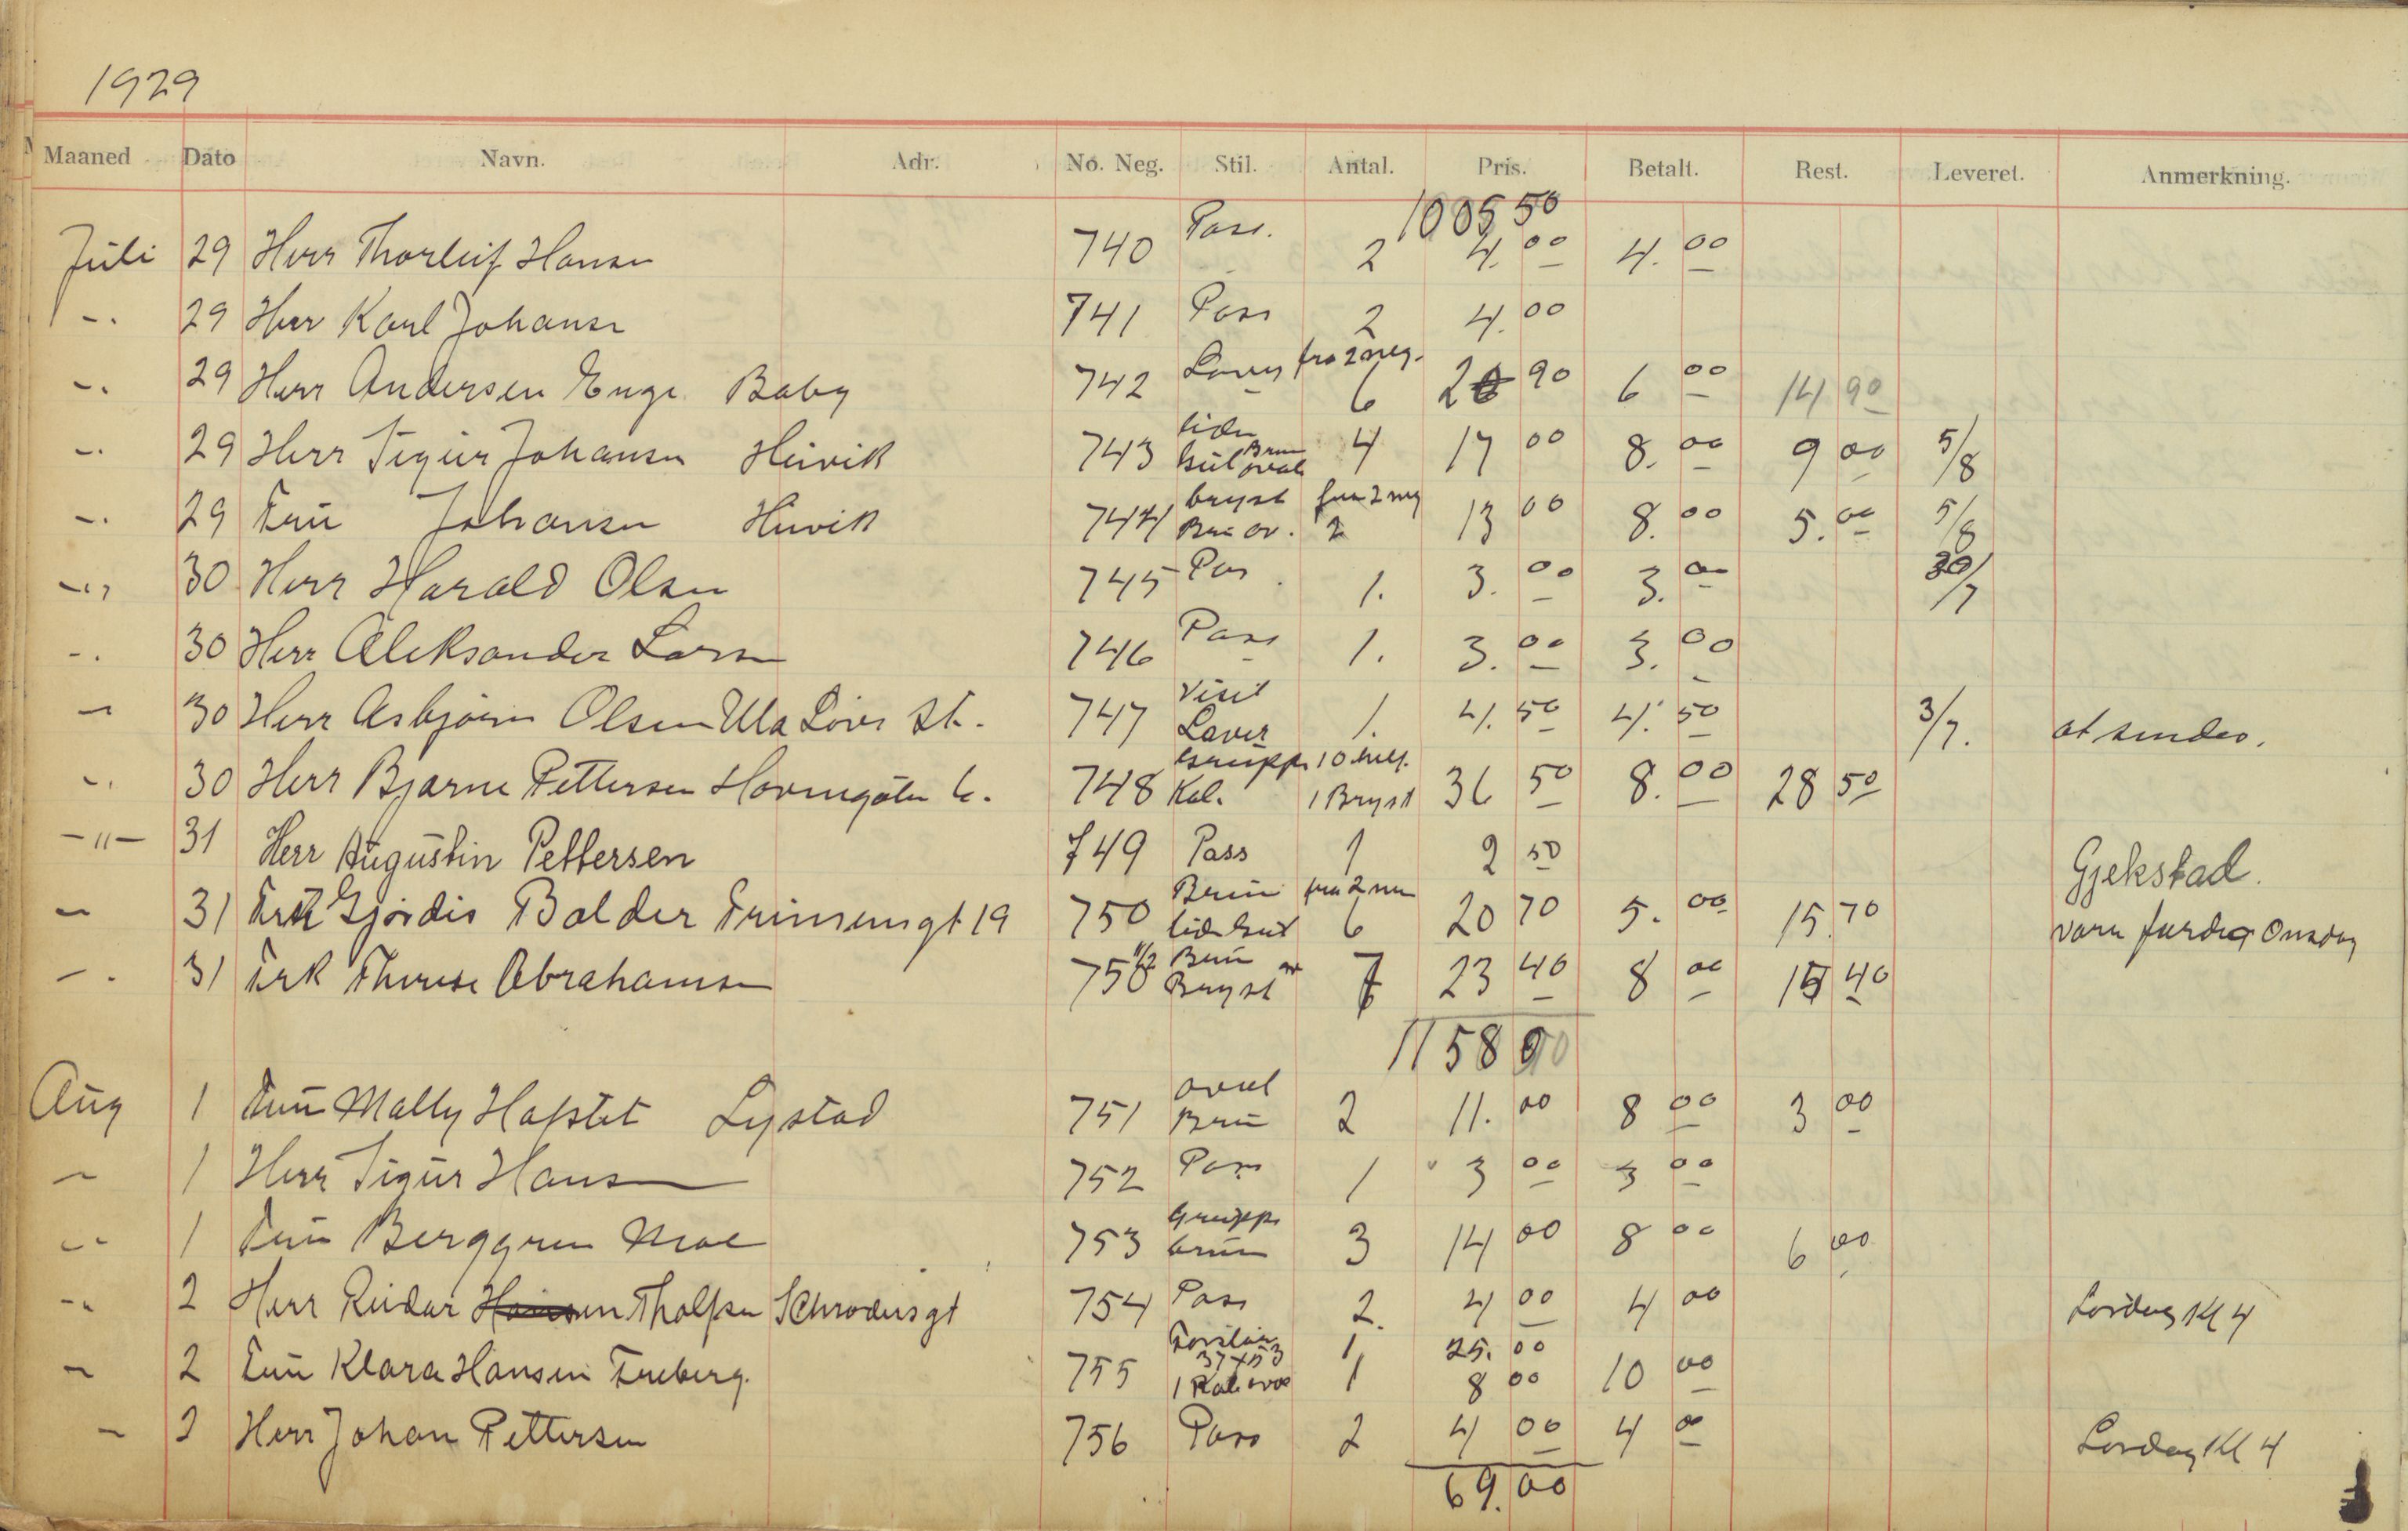 1929
Maaned Dato Navn. Adr. No. Neg. Stil. Antal. Pris. Betalt. Rest. Leveret. Anmerkning.
1005 50
Juli 29 Herr Thorleif Hansen 740 Pass. 2 4.00 4.00
-.. 29 Herr Karl Johansen 741 Pass 2 4.00
-.. 29 Herr Andersen Enge Baby 742 fra 2 neg. 6 20 90 6 00 14 90
-.. 29 Herr Sigur Johansen 743 Brun oval 4 17 00 8.00 9 00 5/8
-.. 29 Fru Johansen 744 bryst Brun ov. fra 2 neg 2 13 00 8.00 5.00 5/8
-.. 30 Herr Harald Olsen 745 Pas. 1. 3.00 3.00 30/7
-.. 30 Herr Aleksander Larsen 746 Pass 1. 3.00 3.00
- 30 Herr Asbjørn Olsen Ula 747 Visit 1. 4.50 4.50 3/7. at sendes.
-.. 30 Herr Bjarne Pettersen 6. 748 Gruppe Kab. 10 hel. 1 Bryst 36 50 8.00 28 50
-"- 31 Herr Augustin Pettersen 749 Pass 1 2 50 Gjekstad.
- 31 Frk Hjørdis Bolder 19 750 Brun fra 2 6 20 70 5.00 15.70 være færdig Onsdag
-. 31 Frk Therese Abrahamsen 750 1/2 Brun Bryst 7 23 40 8 00 15 40
1158 00
Aug 1 Fru Mally Hafstet Lystad 751 oval Brun 2 11.00 8 00 3 00
- 1 Herr Sigur Hansen 752 Pass 1 3 00 3 00
-.. 1 Fru Berggren Moe 753 Gruppe brun 3 14 00 8 00 6 00
-.. 2 Herr Reidar Hansen Tholfsen Schrodersgt 754 Pass 2. 4 00 4 00 Lørdag Kl 4
- 2 Fru Klara Hansen Freberg. 755 37x53 1 25.00
1 Kab 1 8 00 10 00
- 2 Herr Johan Pettersen 756 Pass 2 4 00 4 00 Lørdag Kl 4
69.00